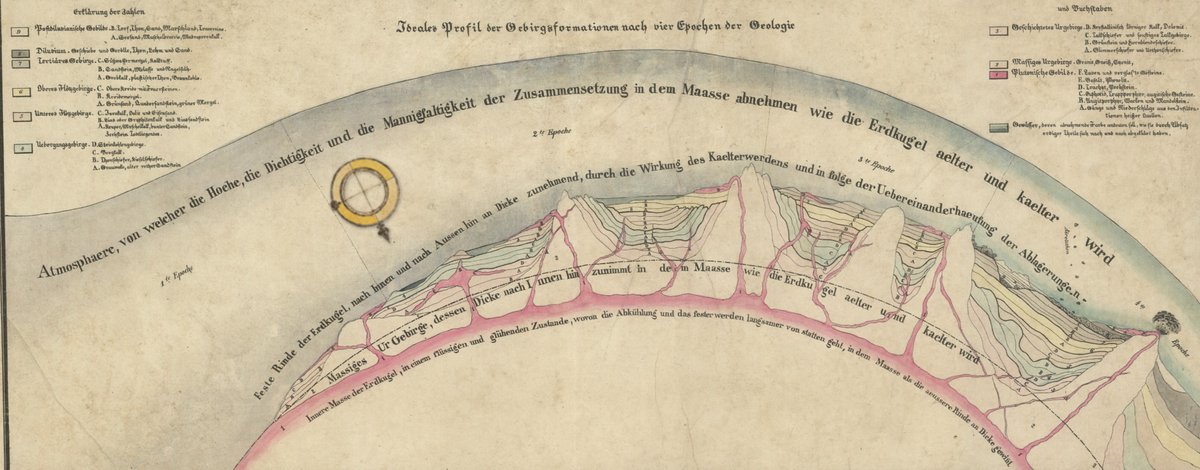 Ideales Profil der Gebirgsformationen nach vier Epochen der Geologie
Erklärung der Zahlen
9 Postdiluvianische Gebilde. B. Torf, Thon, Sand, Marschland, Travertino.
8 Diluvium. Geschiebe und Gerölle, Thon, Lehm und Sand.
7 Tertiäres Gebirge. C. Süsswassermergel, Kalktuff,
B. Sandstein, Molasse und Nagelfluh.
A. Grobkalk, plastischer Thon, Braunkohle.
6 Oberes Flötzgebirge. C. Obere Kreide
B. Kreidemergel.
A. Grünsand, Quadersandstein, grüner Mergel.
5 Unteres Flötzgebirge. C. Jurakalk,
B. Lias oder Gryphitenkalk und Liassandstein
A. Keuper, Muschelkalk, bunter Sandstein,
Zechstein
4 Uebergangsgebirge. D. Steinkohlengebirge.
C. Bergkalk.
B. Thonschiefer, Kieselschiefer.
A. Grauwacke, alter rother Sandstein
und Buchstaben
3 Geschichtetes Urgebirge. D. Krystallinisch körniger Kalk, Dolomit.
C. Talkschiefer und sonstiges Talkgebirge.
B. Grünstein und Hornblendeschiefer.
A. Glimmerschiefer und
2 Massiges Urgebirge. Granit, Gneiss,
1 Plutonische Gebilde. F. Laven und verglaste Gesteine.
E. Basalt, Phonolit.
D. Trachyt, Pechstein.
B. Augitporphyr, Wacken und Mandelstein.
A. Gänge und Niederschläge aus den
heisser Quellen.
Gewässer, deren abnehmende Farbe andeuten soll, wie sie durch Absatz
erdiger Theile sich nach und nach abgeklärt haben.
Atmosphaere, von welcher die Hoehe, die Dichtigkeit und die Mannigfaltigkeit der Zusammensetzung in dem Maasse abnehmen wie die Erdkugel aelter und kaelter wird
1te Epoche
2te Epoche
3te Epoche
4te Epoche
Feste Rinde der Erdkugel, nach Innen und nach Aussen hin an Dicke zunehmend, durch die Wirkung des Kaelterwerdens und in folge der Uebereinanderhaeufung der Ablagerungen.
Massiges Ur Gebirge, dessen Dicke nach Innen hin zunimmt in dem Maasse wie die Erdkugel aelter und kaelter wird
Innere Masse der Erdkugel, in einem flüssigen und glühenden Zustande, wovon die Abkühlung und das fester werden langsamer von statten geht, in dem Maasse als die aeussere Rinde an Dicke gewinnt